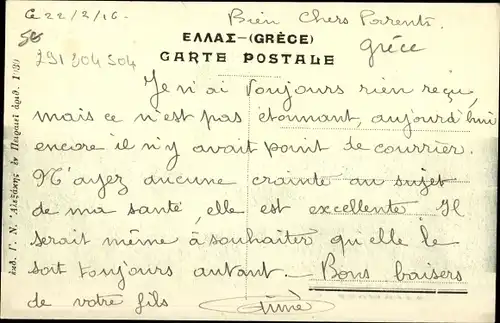 Ce 22/2/16.
Bien Chers Parents.
ΕΛΛΑΣ-(GRÈCE)
CARTE POSTALE
Grèce
58
291 304 504
Je n'ai toujours rien reçu,
mais ce n'est pas étonnant, aujourd'hui
encore il n'y avait point de courrier.
N'ayez aucune crainte au sujet
de ma santé, elle est excellente. Il
serait même à souhaiter qu'elle le
soit toujours autant. — Bons baisers
de votre fils
Aimé
ἐκδ. Γ. Ν. Ἀλεξάκης ἐν Πειραιεῖ ἀριθ.